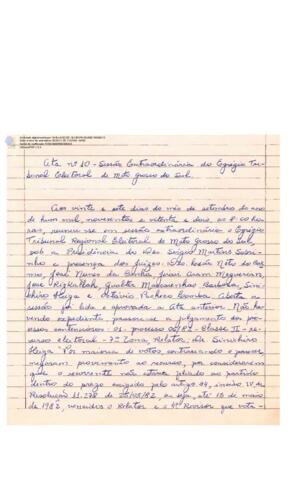 Ata nº 10 - Sessão Extraordinária do Egrégio Tri-
bunal Eleitoral de Mato Grosso do Sul.
Aos vinte e sete dias do mês de setembro do ano
de hum mil, novecentos e oitenta e dois, às 8 ho-
ras, reuniu-se em sessão extraordinária o Egrégio
Tribunal Regional Eleitoral de Mato Grosso do Sul,
sob a Presidência do Des. Sérgio Martins Sobri-
nho e presença dos juízes: Leão Neto do Car-
mo, José Nunes da Cunha,
José Rizkallah, Gualter Mascarenhas Barbosa,
Higa e Octávio Pacheco Lomba. Aberta a
sessão foi lida e aprovada a Ata anterior. Não ha-
vendo expediente, passou-se a julgamento dos pro-
cessos contenciosos: 01. processo 06/82 - Classe II - re-
curso eleitoral - 7ª Zona, Relator,
Higa. Por maioria de votos, contrariando o parecer
negaram provimento ao recurso, por considerarem
que o recorrente não estava filiado ao partido
dentro do prazo exigido pelo artigo 04, inciso IV, da
Resolução 11.278 de 25/05/82, ou seja, até 15 de maio
de 1982, vencidos o Relator e o 4º Revisor que vota-